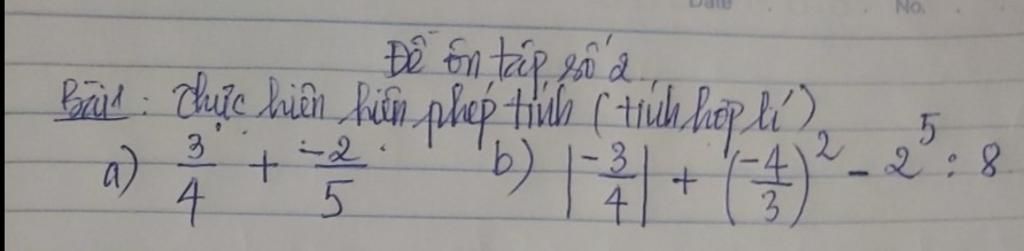 Date No.
Đề ôn tập số 2
Bài 1: Thực hiện hiện phép tính (tính hợp lí)
a) 3/4 + -2/5 b) |-3/4| + (-4/3)² - 2⁵ : 8